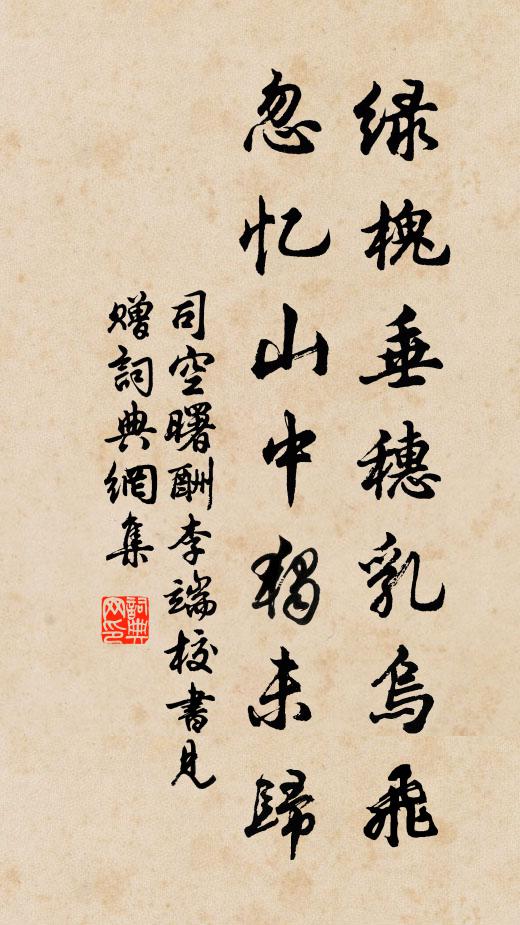 绿槐垂穗乳乌飞
忽忆山中独未歸
司空曙酬李端校書見
赠詞典網集
詞典网印